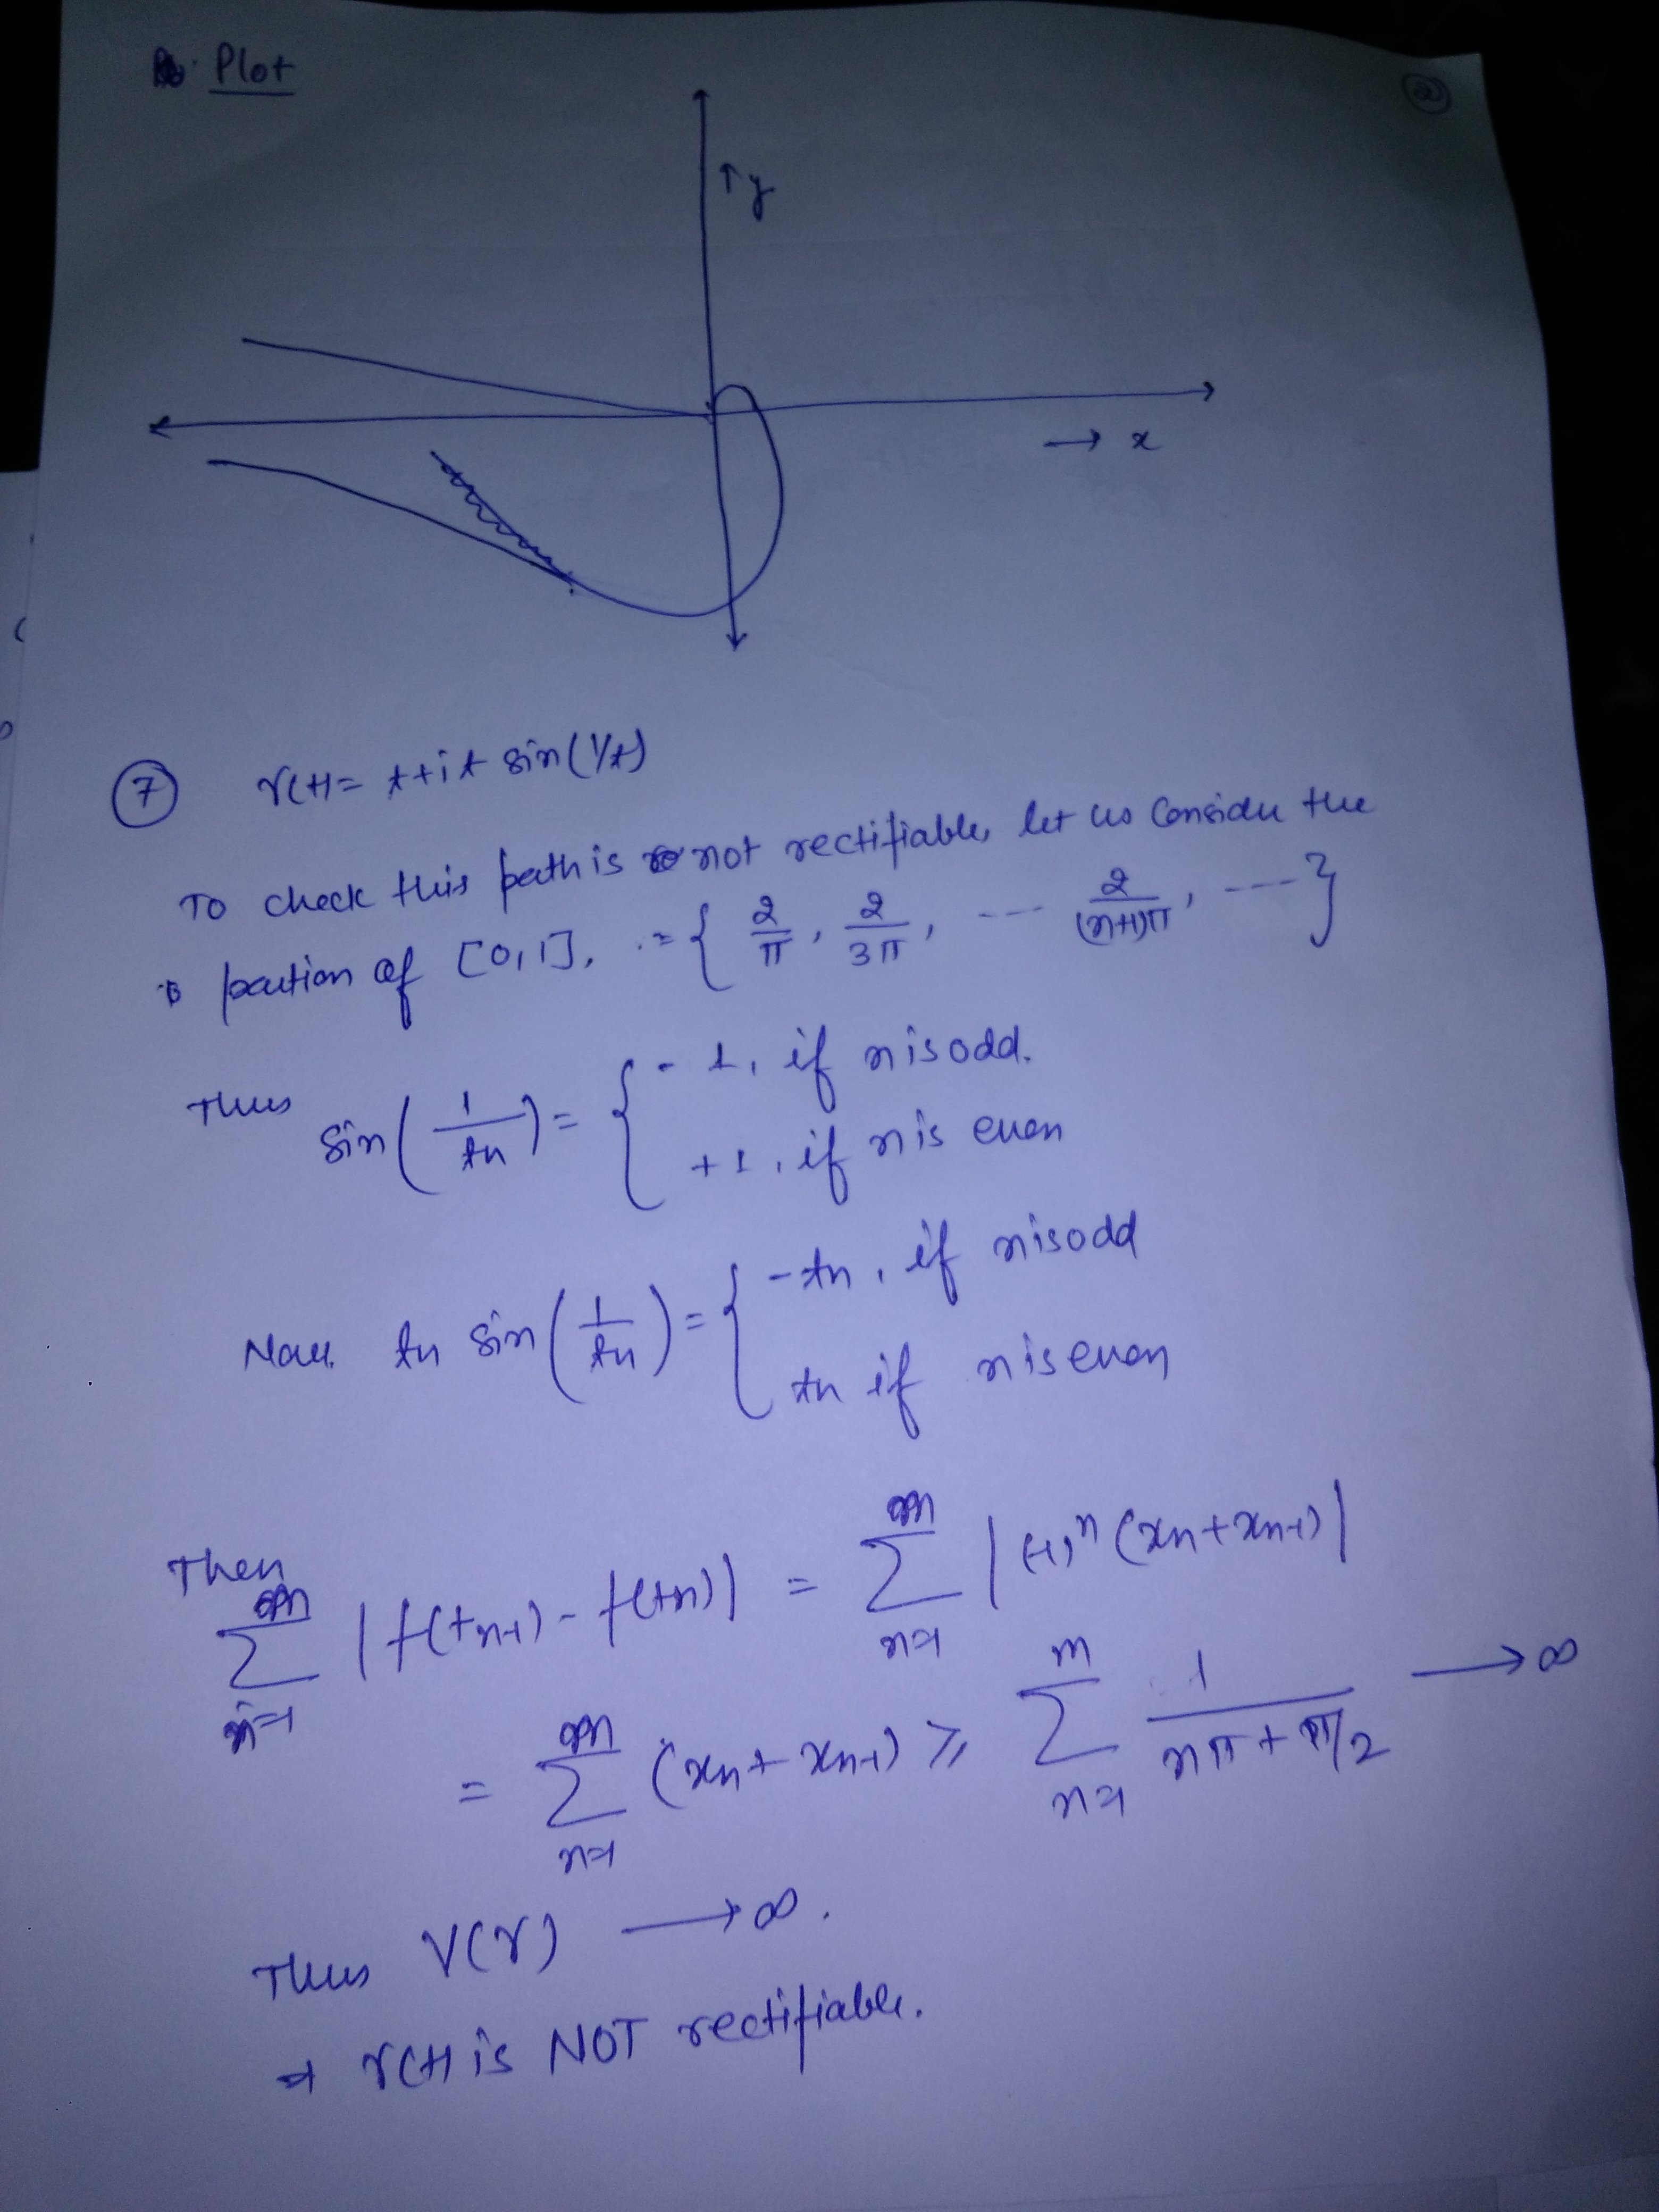 Plot
②
↑y
→ x
⑦ γ(t)= t+it sin(1/t)
To check this path is not rectifiable, let us Consider the
partion of [0,1], = { 2/π, 2/3π, --- 2/(n+1)π, --- }
Thus sin(1/tn) = { -1, if n is odd.
+1, if n is even
Now tn sin(1/tn) = { -tn, if n is odd
tn if n is even
Then
∑_{n=1}^{m} |f(tn-1) - f(tn)| = ∑_{n=1}^{m} |(-1)^n (xn+xn-1)|
= ∑_{n=1}^{m} (xn+xn-1) ≥ ∑_{n=1}^{m} 1/(nπ+π/2) → ∞
Thus V(γ) → ∞.
⇒ γ(t) is NOT rectifiable.